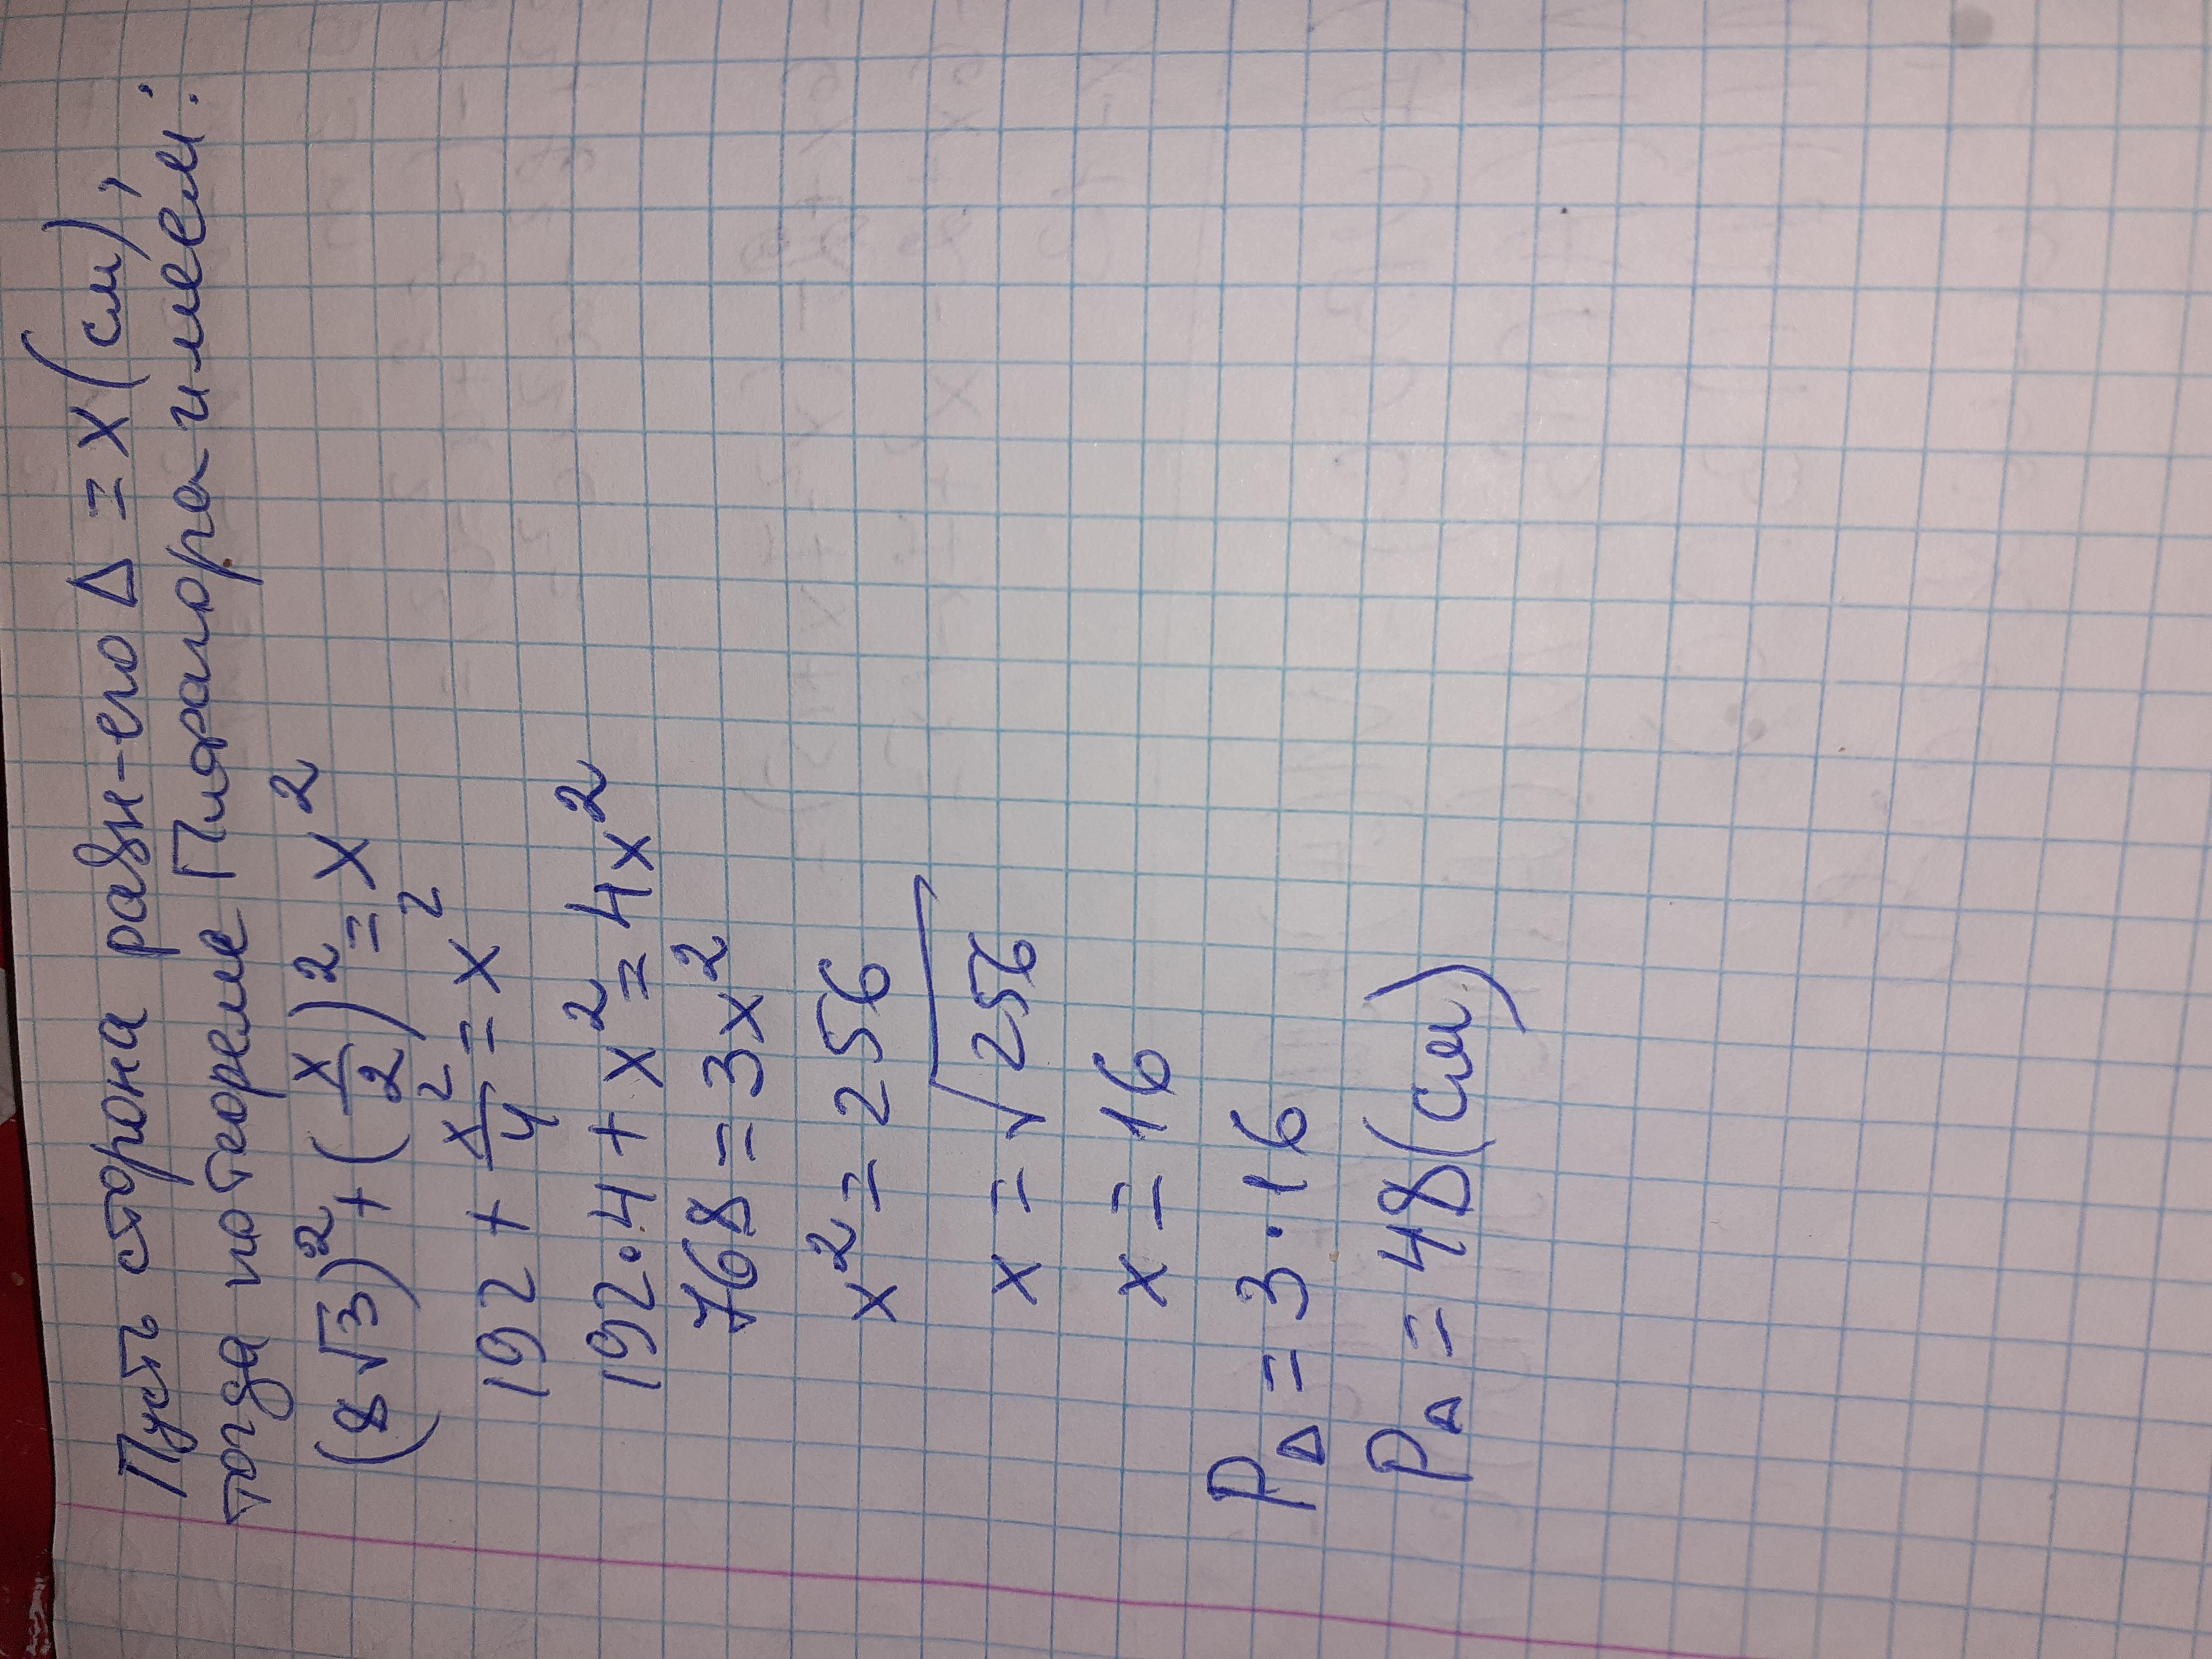 Пусть сторона равн-его Δ = x (см),
тогда по теореме Пифагора имеем:
(8√3)² + (x/2)² = x²
192 + x²/4 = x²
192·4 + x² = 4x²
768 = 3x²
x² = 256
x = √256
x = 16
P_Δ = 3·16
P_Δ = 48 (см)